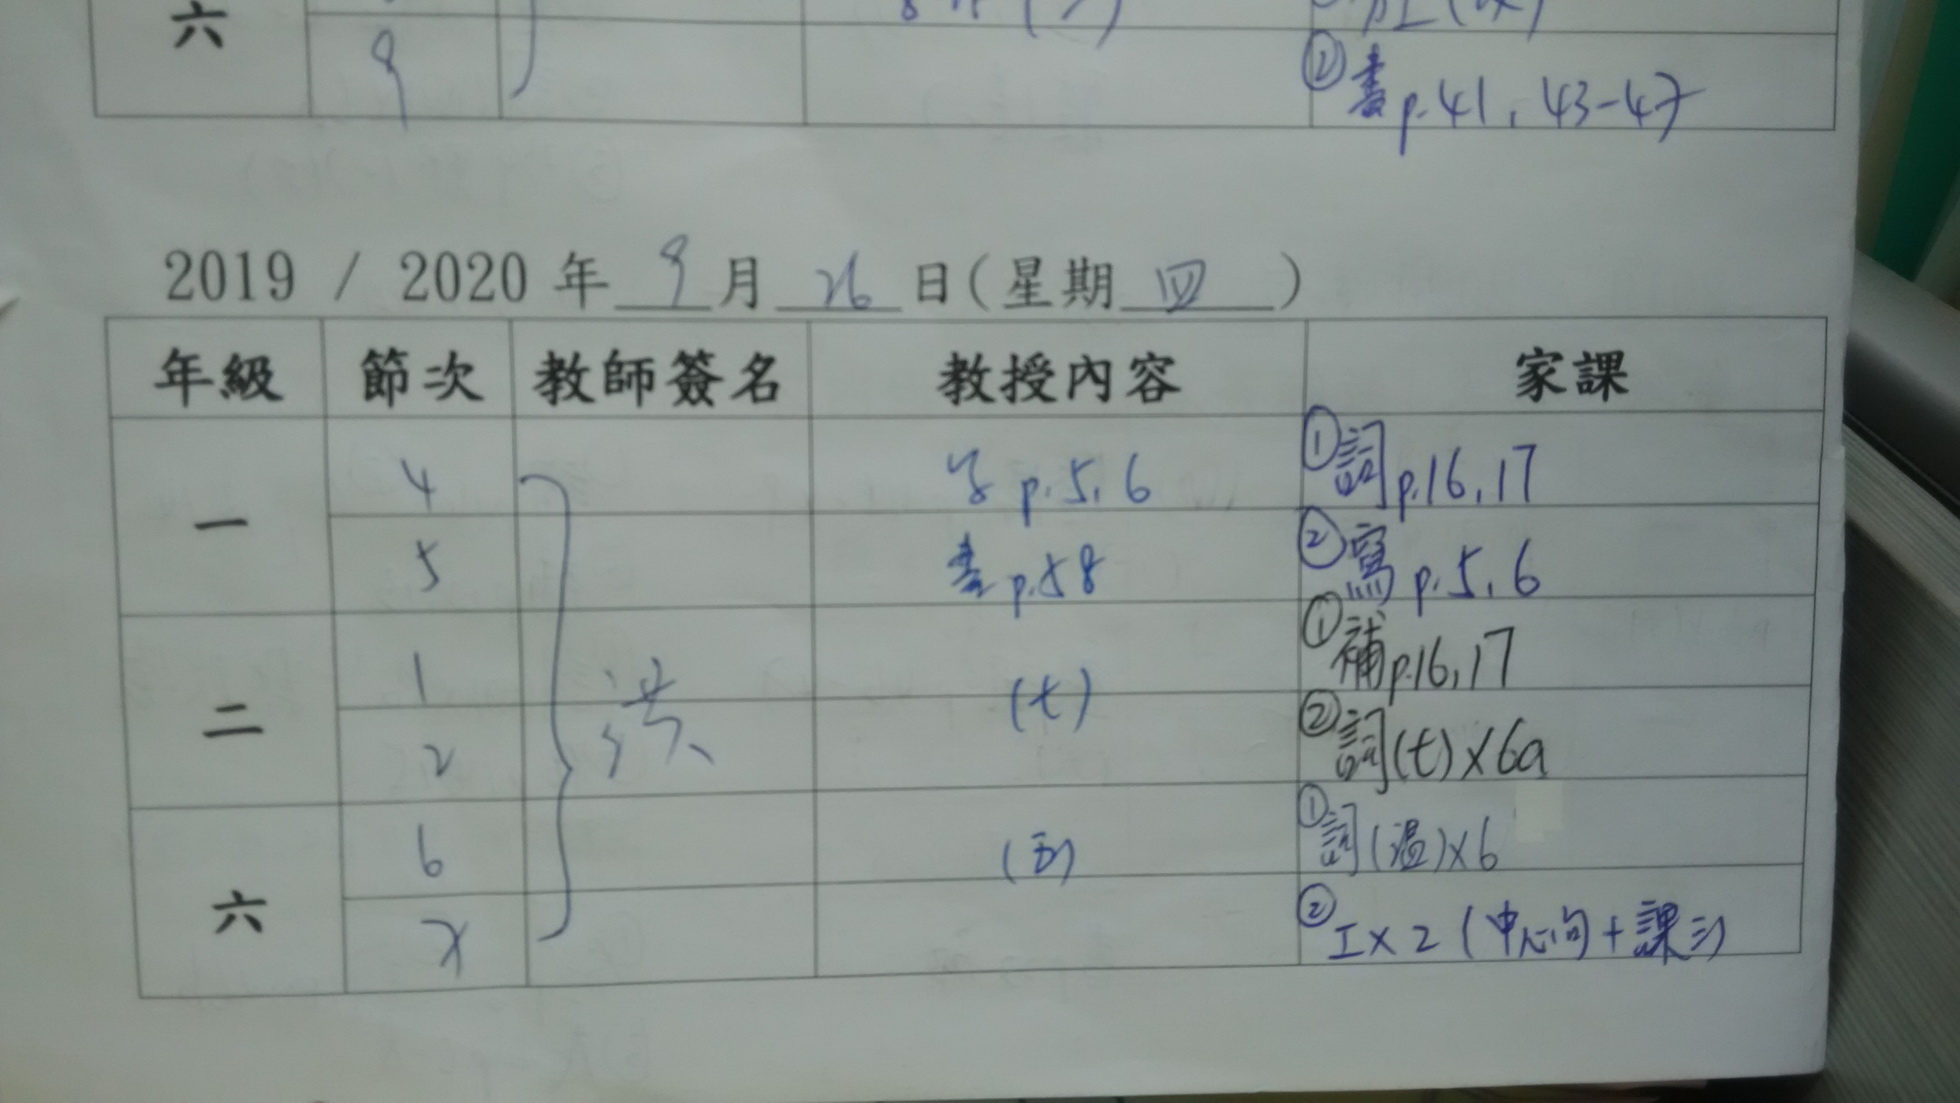 六
9
②書p.41,43-47
2019 / 2020 年 9 月 26 日(星期 四 )
年級 節次 教師簽名 教授內容 家課
一 4 p.5,6 ①詞p.16,17
5 書p.58 ②寫p.5,6
二 1 (t) ①補p.16,17
2 ②詞(t)×6a
六 6 ①詞(溫)×6
7 ②工×2(中心句+課